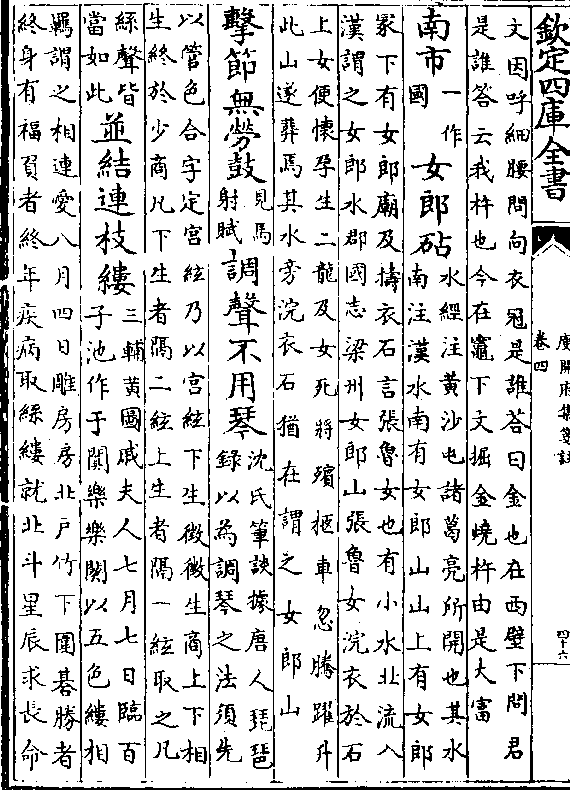 欽定四庫全書
庾開府集箋註
卷四
四十六
文因呼細腰問向衣冠是誰答曰金也在西壁下問君
是誰答云我杵也今在竈下文掘金燒杵由是大富
南市
一作
國
女郎砧
水經注黃沙屯諸葛亮所開也其水
南注漢水南有女郎山山上有女郎
冢下有女郎廟及擣衣石言張魯女也有小水北流入
漢謂之女郎水郡國志梁州女郎山張魯女浣衣於石
上女便懷孕生二龍及女死將殯柩車忽騰躍升
此山遂葬焉其水旁浣衣石猶在謂之女郎山
擊節無勞鼓
見馬
射賦
調聲不用琴
沈氏筆談據唐人琵琶
錄以為調琴之法須先
以管色合字定宮絃乃以宮絃下生徵徵生商上下相
生終於少商凡下生者隔二絃上生者隔一絃取之凡
絲聲皆
當如此
並結連枝縷
三輔黃圖戚夫人七月七日臨百
子池作于闐樂樂闋以五色縷相
羈謂之相連愛八月四日雕房房北戶竹下圍碁勝者
終身有福負者終年疾病取絲縷就北斗星辰求長命